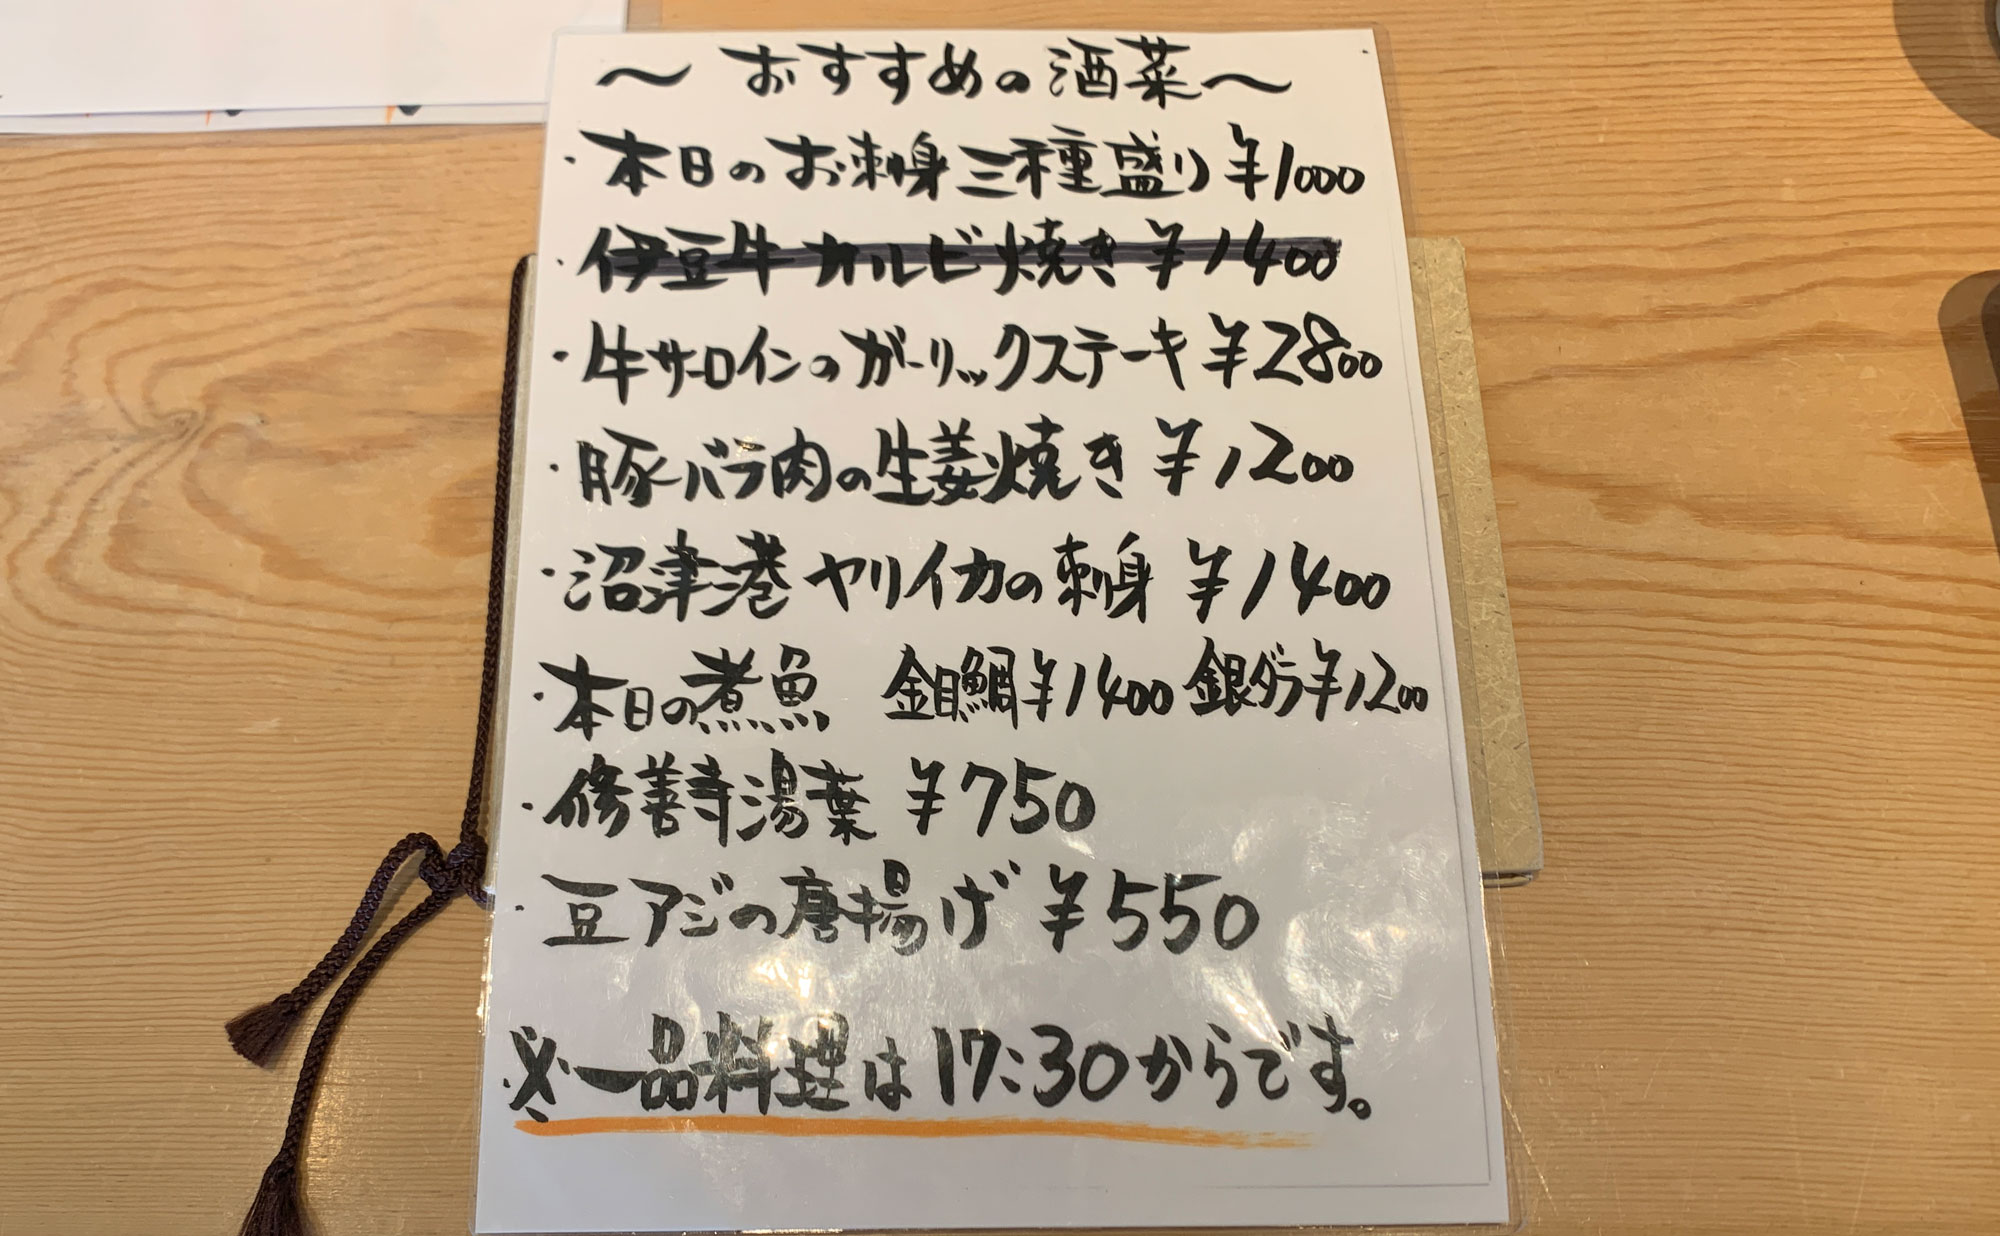 ～おすすめの酒菜～
・本日のお刺身三種盛り ¥1000
・伊豆牛カルビ焼き ¥1400
・牛サーロインのガーリックステーキ ¥2800
・豚バラ肉の生姜焼き ¥1200
・沼津港ヤリイカの刺身 ¥1400
・本日の煮魚 金目鯛¥1400 銀ダラ¥1200
・修善寺湯葉 ¥750
・豆アジの唐揚げ ¥550
※一品料理は17:30からです。